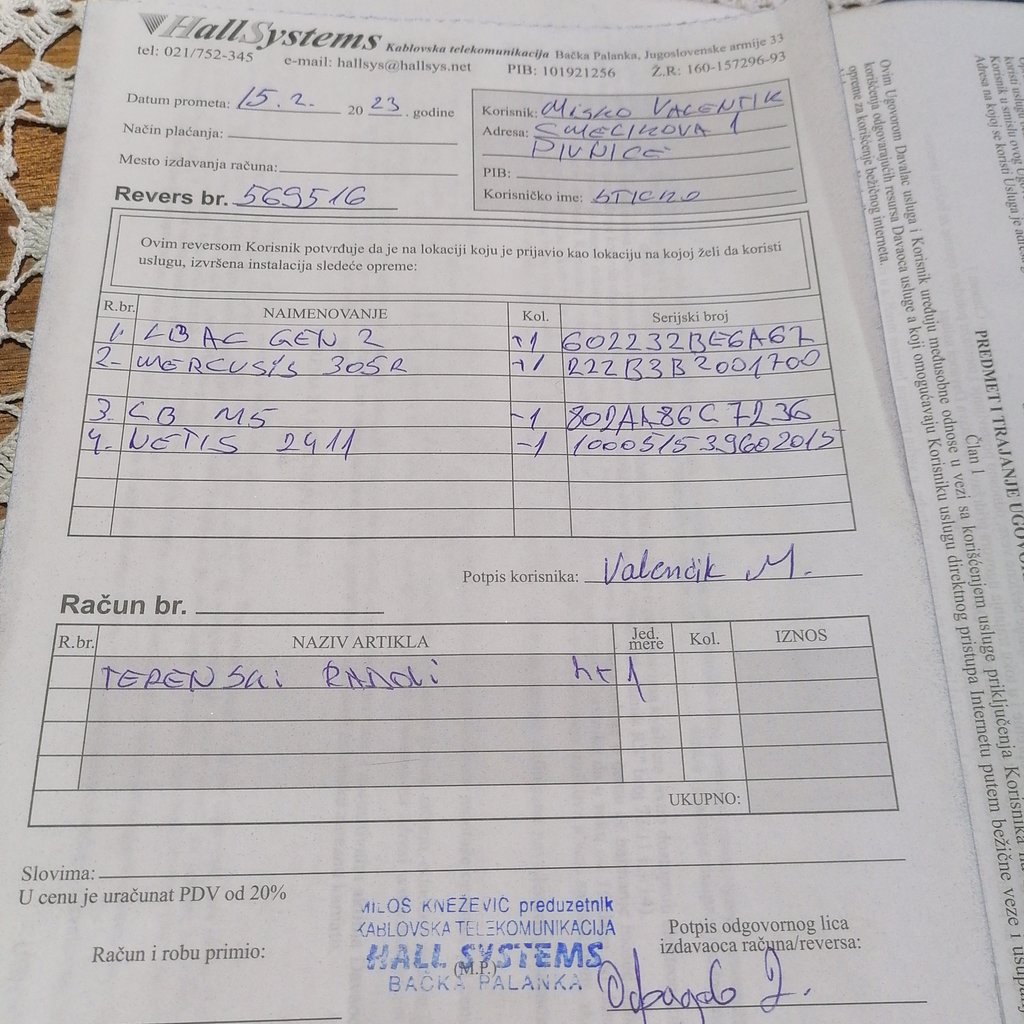 HallSystems Kablovska telekomunikacija Bačka Palanka, Jugoslovenske armije 33
tel: 021/752-345 e-mail: hallsys@hallsys.net PIB: 101921256 Ž.R: 160-157296-93
Datum prometa: 15.2. 20 23. godine
Način plaćanja:
Mesto izdavanja računa:
Revers br. 569516
Korisnik: MIŠKO VALENTIK
Adresa: SMECIKOVA 1
PIVNICE
PIB:
Korisničko ime:
Ovim reversom Korisnik potvrđuje da je na lokaciji koju je prijavio kao lokaciju na kojoj želi da koristi
uslugu, izvršena instalacija sledeće opreme:
R.br. NAIMENOVANJE Kol. Serijski broj
1. LB AC GEN 2 +1 602232BE6A67
2. MERCUSYS 305R +1 222B3B2001700
3. LB M5 -1 802AA86C7236
4. NETIS 2411 -1 100051539602015
Potpis korisnika: Valenčik M.
Račun br.
R.br. NAZIV ARTIKLA Jed. mere Kol. IZNOS
TERENSKI RADNI 1
UKUPNO:
Slovima:
U cenu je uračunat PDV od 20%
Račun i robu primio:
MILOŠ KNEŽEVIĆ preduzetnik
KABLOVSKA TELEKOMUNIKACIJA
HALL SYSTEMS
(M.P.)
BAČKA PALANKA
Potpis odgovornog lica
izdavaoca računa/reversa:
PREDMET I TRAJANJE UGOVOR
Član 1
Ovim Ugovorom Davalac usluga i Korisnik uređuju međusobne odnose u vezi sa korišćenjem usluge priključenja Korisnika na
korišćenja odgovarajućih resursa Davaoca usluge a koji omogućavaju Korisniku uslugu direktnog pristupa Internetu putem bežične veze i
opreme za korišćenje bežičnog interneta.